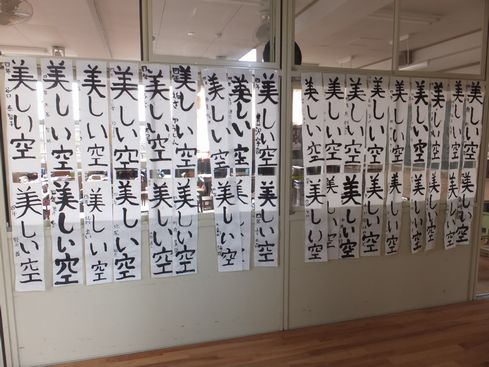 美しい空
美しい空
美しい空
美しい空
美しい空
美しい空
美しい空
美しい空
美しい空
美しい空
美しい空
美しい空
美しい空
美しい空
美しい空
美しい空
美しい空
美しい空
美しい空
美しい空
美しい空
美しい空
美しい空
美しい空
美しい空
美しい空
美しい空
美しい空
美しい空
美しい空
美しい空
美しい空
美しい空
美しい空